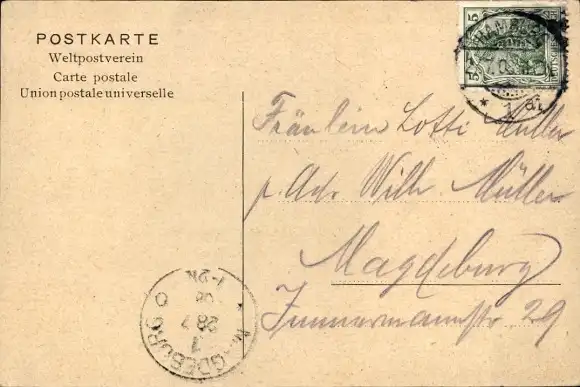 POSTKARTE
Weltpostverein
Carte postale
Union postale universelle
5 5
HAMBURG
* 1 a1
Fräulein Lotti Müller
p. Adr. Wilh. Müller
Magdeburg
Immermannstr 29
MAGDEBURG
1
28 7
06
1-2N